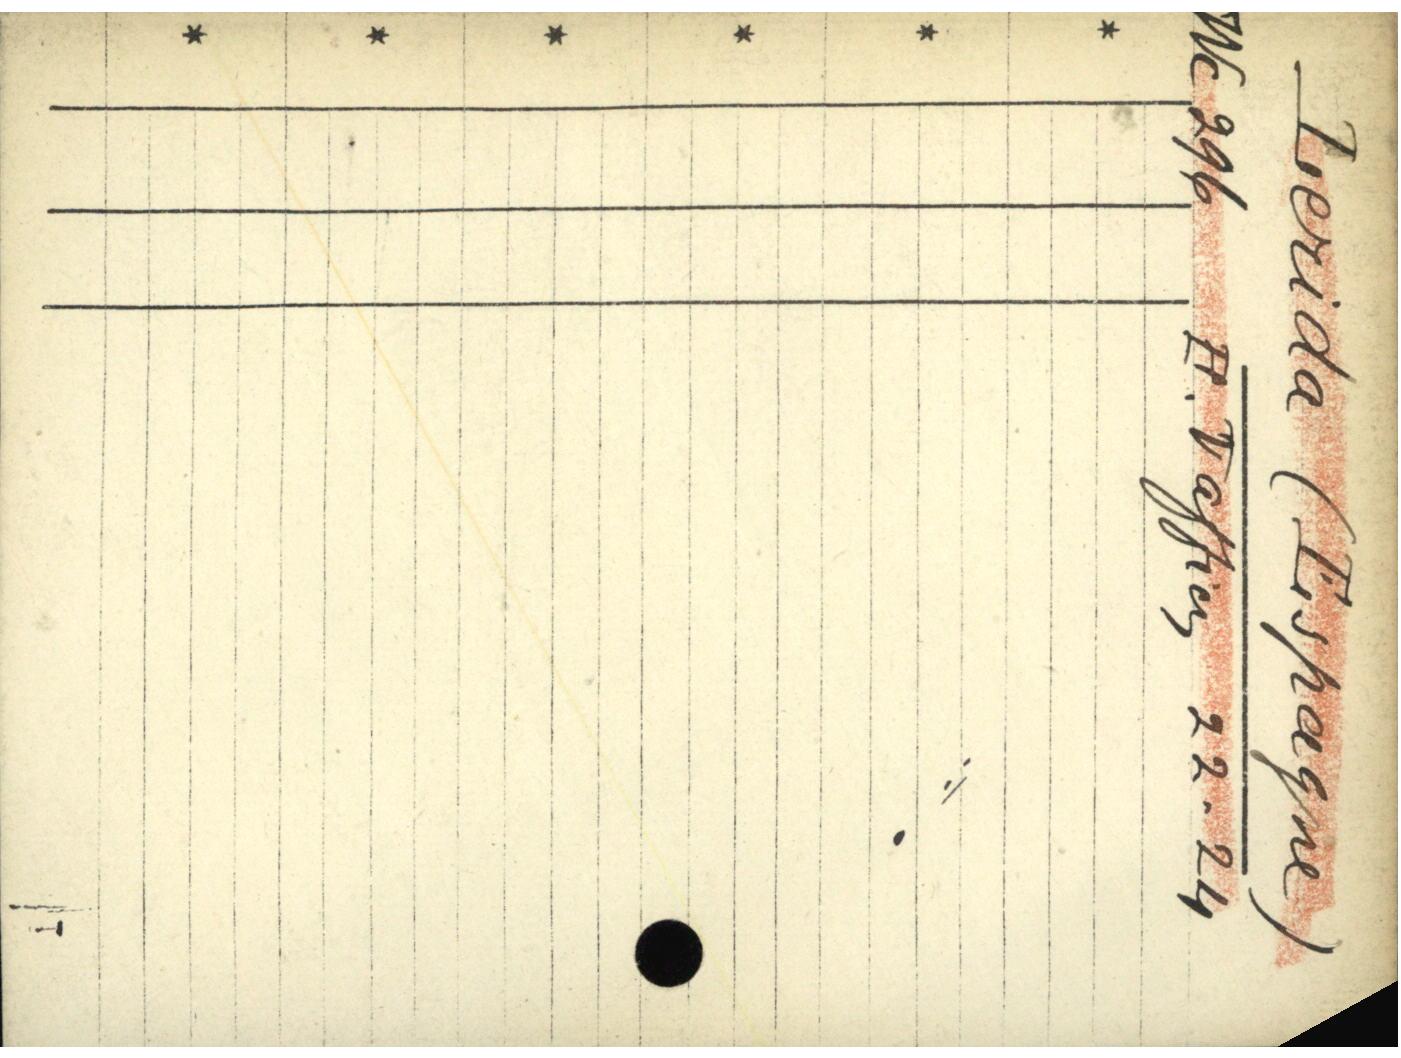 Lerida (Espagne)
Wc 296 E. Taffin 22-24
*
*
*
*
*
*
I